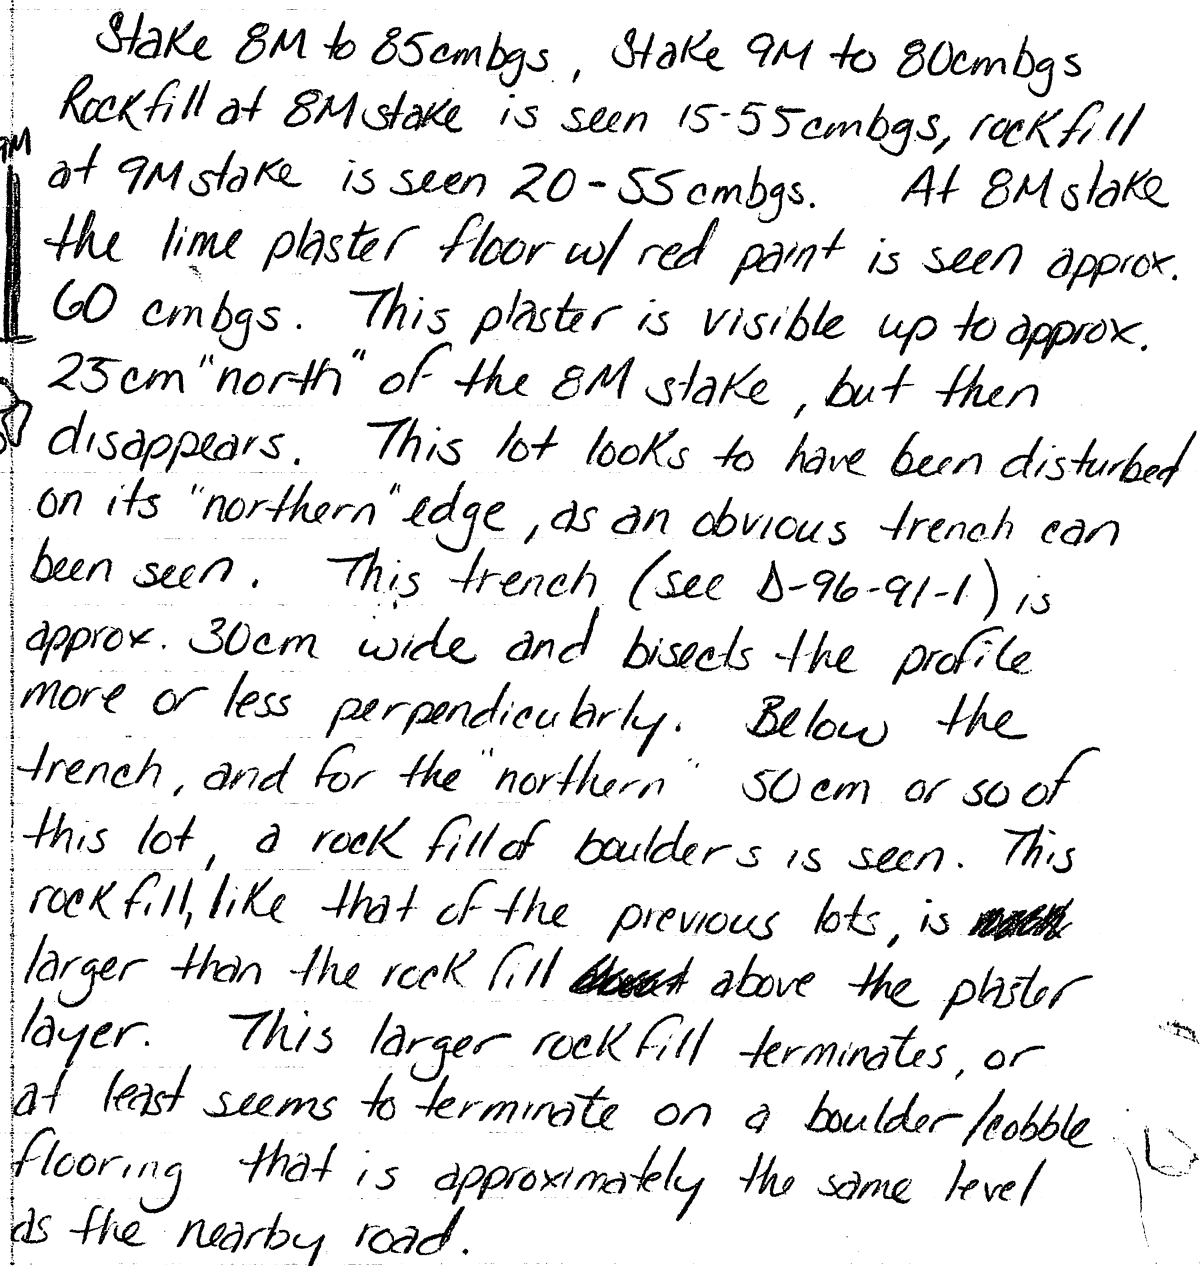 Stake 8M to 85cmbgs, Stake 9M to 80cmbgs
Rockfill at 8M stake is seen 15-55cmbgs, rockfill
9M
at 9M stake is seen 20-55cmbgs. At 8M stake
the lime plaster floor w/ red paint is seen approx.
60 cmbgs. This plaster is visible up to approx.
25cm "north" of the 8M stake, but then
disappears. This lot looks to have been disturbed
on its "northern" edge, as an obvious trench can
been seen. This trench (see D-96-91-1) is
approx. 30cm wide and bisects the profile
more or less perpendicularly. Below the
trench, and for the "northern" 50cm or so of
this lot, a rock fill of boulders is seen. This
rockfill, like that of the previous lots, is
larger than the rock fill above the plaster
layer. This larger rockfill terminates, or
at least seems to terminate on a boulder/cobble
flooring that is approximately the same level
as the nearby road.